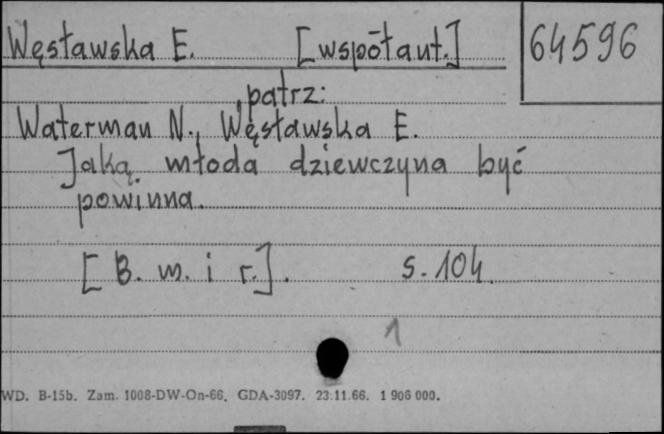 Węsławska E. [współaut.] 64596
patrz:
Waterman N., Węsławska E.
Jaką młoda dziewczyna być
powinna.
[B. m. i r.]. s. 104.
1
WD. B-15b. Zam. 1008-DW-On-66. GDA-3097. 23.11.66. 1 906 000.